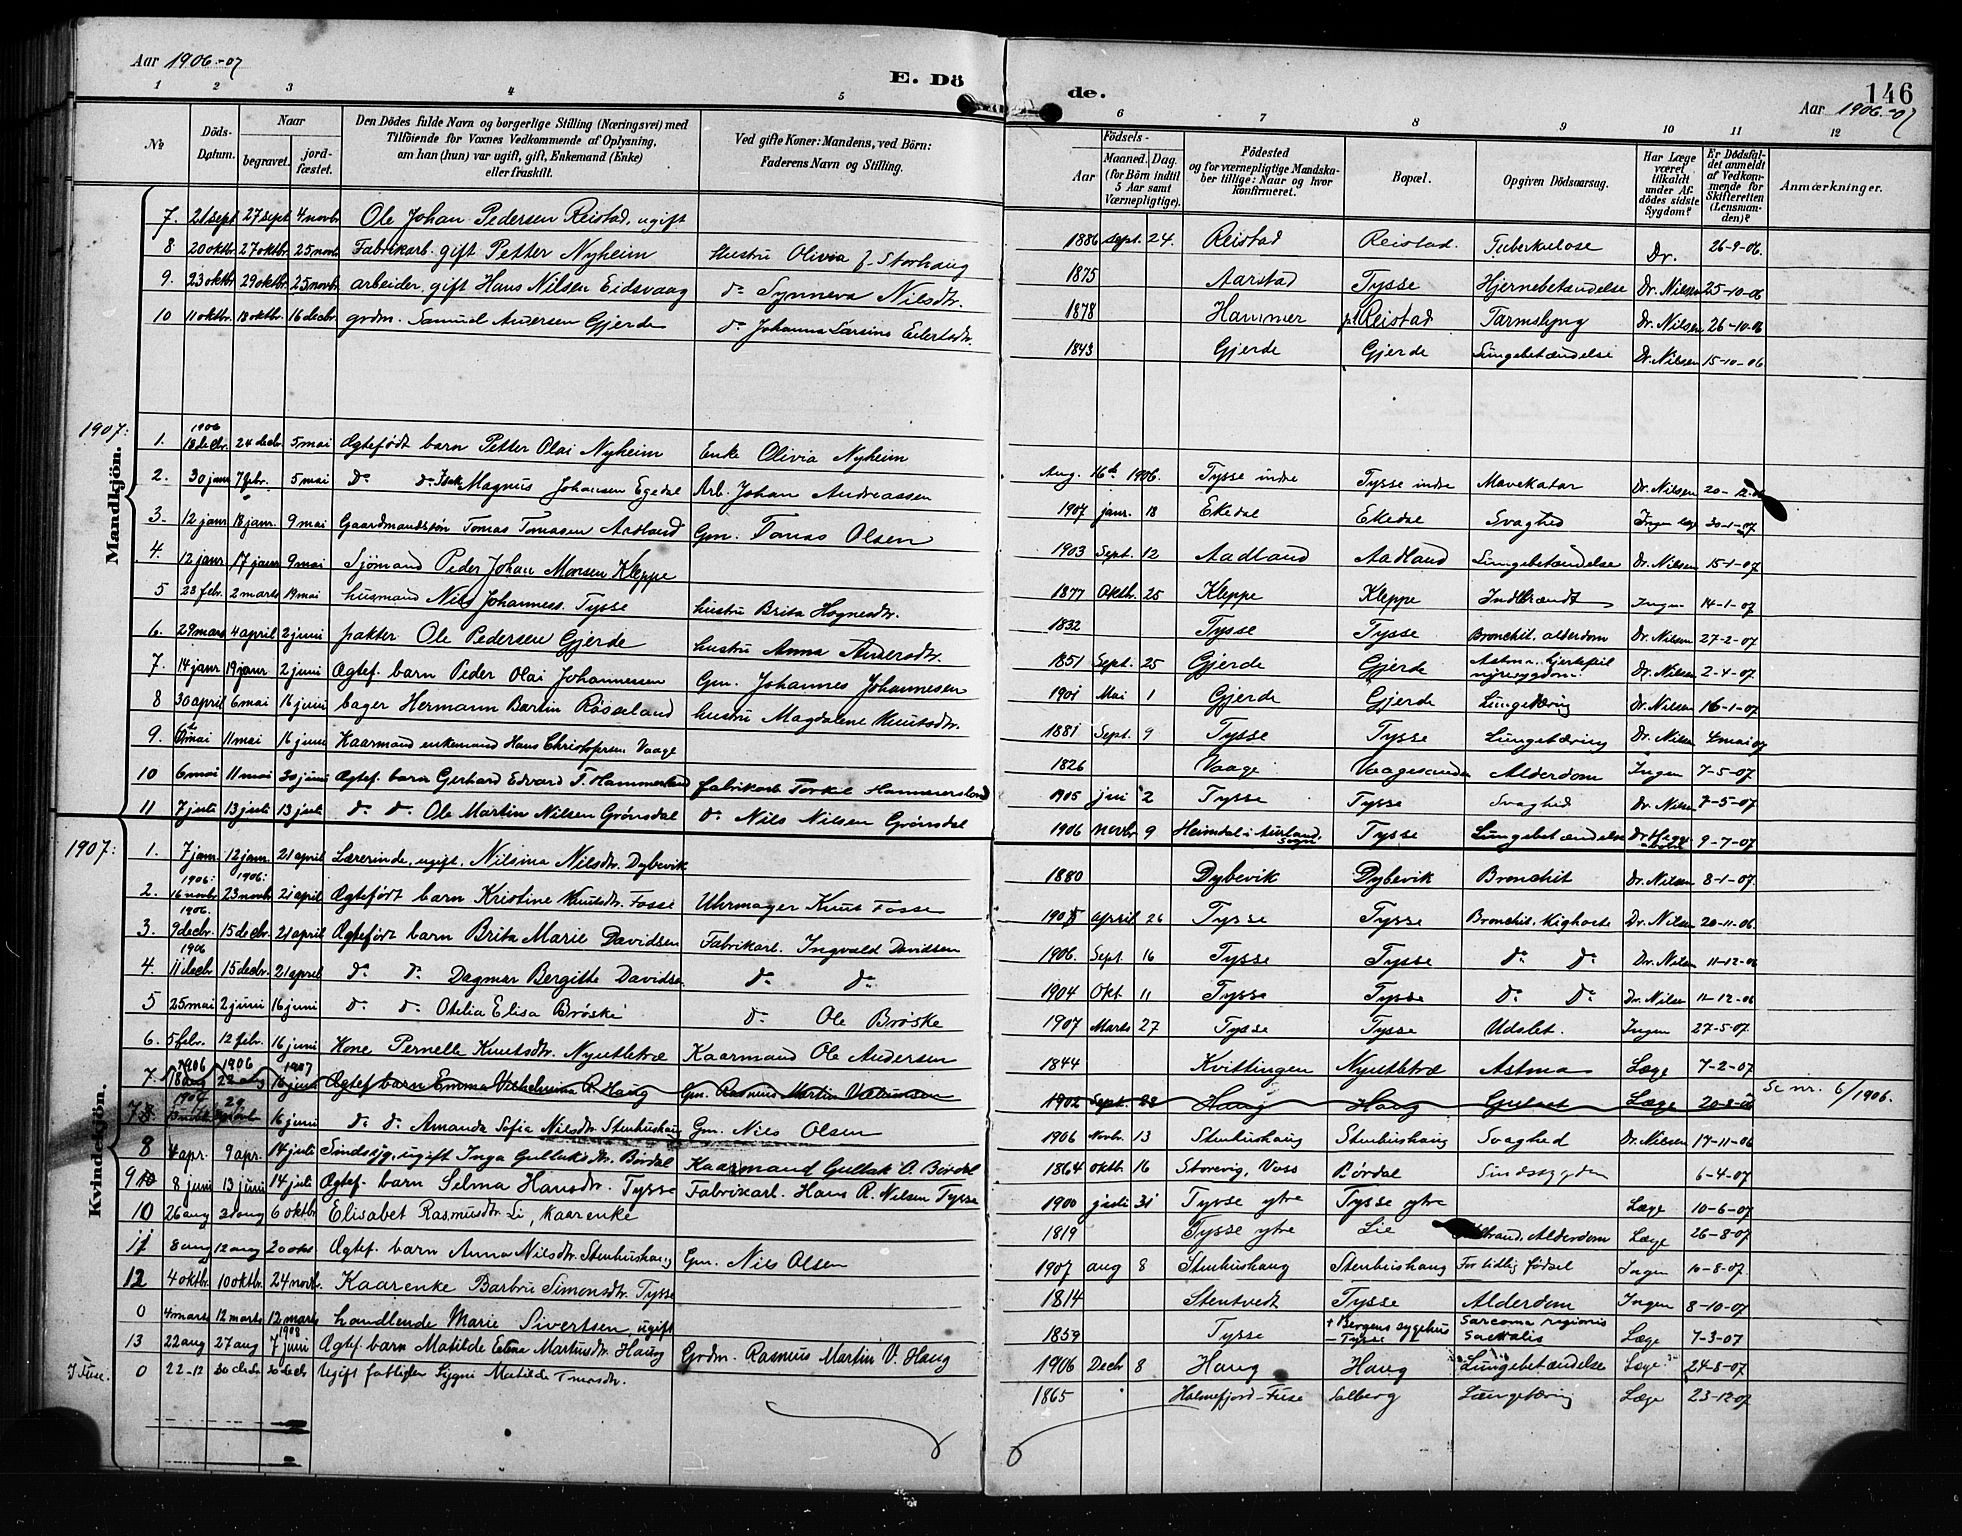 Aar 1906-07
E. Dö
de.
146
Aar 1906-07
1 2 3 4 5 6 7 8 9 10 11 12
No
Döds-Datum.
Naar
begravet.
jord-fæstet.
Den Dödes fulde Navn og borgerlige Stilling (Næringsvei) med
Tilföiende for Voxnes Vedkommende af Oplysning,
om han (hun) var ugift, gift, Enkemand (Enke)
eller fraskilt.
Ved gifte Koner: Mandens, ved Börn:
Faderens Navn og Stilling.
Födsels-
Aar
Maaned. Dag.
(for Börn indtil
5 Aar samt
Værnepligtige).
Födested
og for værnepligtige Mandska-
ber tillige: Naar og hvor
konfirmeret.
Bopæl.
Opgiven Dödsaarsag.
Har Læge
været
tilkaldt
under Af-
dödes sidste
Sygdom?
Er Dödsfal-
det anmeldt
af Vedkom-
mende for
Skifteretten
(Lensman-
den)?
Anmærkninger.
7. 21 sept 27 sept 4 novbr Ole Johan Pedersen Reistad, ugift 1886 sept. 24. Reistad Reistad. Tuberkulose Dr. 26-9-06.
8 20 oktbr. 27 oktbr. 25 novb Fabrikarb. gift Petter Nyheim Hustru Olivia f. Storhaug 1875 Aarstad Tysse Hjernebetændelse Dr. Nilsen 25-10-06
9. 23 oktbr 29 oktbr. 25 novbr. arbeider, gift Hans Nilsen Eidsvaag do Synneva Nilsdtr. 1878 Hammer Reistad Tarmslyng Dr. Nilsen 26-10-06
10 11 oktbr. 18 oktbr. 16 decbr grdm. Samuel Andersen Gjerde do Johanna Larsine Eilertsdtr. 1843 Gjerde Gjerde Lungebetændelse Dr. Nilsen 15-10-06
1907:
Mandkjön.
1. 1906 18 decbr. 24 decbr. 5 mai Ægtefødt barn Petter Olai Nyheim Enke Olivia Nyheim Aug. 16de 1906. Tysse indre Tysse indre Mavekatar Dr. Nilsen 20-12-06
2. 30 janr 7 febr. 5 mai do do Isak Magnus Johansen Egedal Arb. Johan Andreassen 1907 janr. 18 Ekedal Ekedal Svaghed Ingen læge 30-1-07
3. 12 janr 18 janr. 9 mai Gaardmandssøn Tomas Tomasen Aadland Gm. Tomas Olsen 1903 Sept. 12 Aadland Aadland Lungebetændelse Dr. Nilsen 15-1-07
4. 12 janr 17 janr 9 mai Sjömand Peder Johan Monsen Kleppe 1877 Oktb. 25 Kleppe Kleppe Ingen 14-1-07
5 23 febr. 2 marts 19 mai husmand Nils Johanness. Tysse hustru Brita Hognesdtr. 1832 Tysse Tysse Bronchit, alderdom Dr. Nilsen 27-2-07
6. 29 mars 4 april 2 juni pakter Ole Pedersen Gjerde hustru Anna Andersdtr. 1851 Sept. 25 Gjerde Gjerde Astma, hjertefeil nyresygdom Dr. Nilsen 2-4-07
7. 14 janr 19 janr 2 juni Ægtef. barn Peder Olai Johannessen Gm. Johannes Johannesen 1901 Mai 1 Gjerde Gjerde Lungetæring Dr. Nilsen 16-1-07
8 30 april 6 mai 16 juni bager Hermann Bartin Røsseland hustru Magdalene Knutsdtr. 1881 Sept. 9 Tysse Tysse Lungetæring Dr. Nilsen 4 mai 07
9. 6 mai 11 mai 16 juni Kaarmand enkemand Hans Christofersen Vaage 1826 Vaage Vaagesanden Alderdom Ingen 7-5-07
10 6 mai 11 mai 30 juni Ægtef. barn Gerhard Edvard T. Hammersland fabrikarb Torkil Hammersland 1905 juni 2 Tysse Tysse Svaghed Dr. Nilsen 7-5-07
11 7 juli 13 juli 13 juli do do Ole Martin Nilsen Grönsdal do Nils Nilsen Grönsdal 1906 novbr 9 Heimdal i Aurland sogn Tysse Lungebetændelse 9-7-07
1907:
Kvindekjön.
1. 7 janr 12 janr. 21 april Lærerinde, ugift, Nilsina Nilsdtr. Dybevik 1880 Dybevik Dybevik Bronchit Dr. Nilsen 8-1-07.
2. 1906: 16 novbr 1906: 23 novbr 21 april Ægtefødt barn Kristine Knutsdtr. Fosse Uhrmager Knut Fosse 1905 april 26 Tysse Tysse Bronchit. Kighoste Dr. Nilsen 20-11-06.
3. 1906. 9 decbr. 15 decbr. 21 april Ægtefødt barn Brita Marie Davidsen Fabrikarb. Ingvald Davidsen 1906. Sept. 16 Tysse Tysse do do Dr. Nilsen 11-12-06
4. 1906 11 decbr 15 decbr. 21 april do do Dagmar Bergitte Davidsen do do 1904 Okt. 11 Tysse Tysse do do Dr. Nilsen 11-12-06
5 25 mai 2 juni 16 juni do do Otelia Elisa Brøske do Ole Brøske 1907 Marts 27 Tysse Tysse Udslet. Ingen 27-5-07.
6. 5 febr. 12 febr. 16 juni Kone Pernelle Knutsdtr. Nyutletræ Kaarmand Ole Andersen 1844 Kvittingen Nyutletræ Astma Læge 7-2-07
7. 1906 18 aug 1906 22 aug 1907 16 juni Ægtef. barn Emma Vilhelmina R. Haug Gm. Rasmus Martin 1902 Sept. 22 Haug Haug Gulsot Læge 20-8-06 Se nr. 6/1906.
7 8. 16 juni do do Amanda Sofia Nilsdtr. Stenhushaug Gm. Nils Olsen 1906 Novbr. 13 Stenhushaug Stenhushaug Svaghed Dr. Nilsen 17-11-06
8 4 apr. 9 apr. 14 juli Sindssyg, ugift Inga Gulleiksdtr. Børdal Kaarmand Gullak O. Børdal 1864 oktbr 16 Storevig, Voss Børdal Sindssygdom 6-4-07
9 10 8 juni 13 juni 14 juli Ægtef. barn Selma Hansdtr. Tysse Fabrikarb. Hans R. Nilsen Tysse 1900 juli 31 Tysse ytre Tysse ytre Læge 10-6-07
10 26 aug 30 aug 6 oktbr Elisabet Rasmusdtr Li, Kaarenke 1819 Tysse ytre Lie Alderdom Læge 26-8-07
11 8 aug 12 aug 20 okt. Ægtef. barn Anna Nilsdtr. Stenhushaug Gm. Nils Olsen 1907 aug 8 Stenhushaug Stenhushaug For tidlig födsel Ingen 10-8-07.
12 4 oktbr. 10 oktbr. 24 novbr. Kaarenke Barbru Simonsdtr. Tysse 1814 Stentvedt Tysse Alderdom Ingen 8-10-07
0 4 marts 12 marts 12 marts handlende Marie Sivertsen, ugift 1859 Tysse + Bergens sygehus – Tysse Sarcoma regionis sacralis Læge 7-3-07
13 22 aug 27 aug 1908 7 juni Ægtef. barn Matilde Elena Martinsdtr. Haug Grdm. Rasmus Martin V. Haug 1906 Decbr 8 Haug Haug Lungebetændelse Læge 24-8-07
I Fuse. 0 22-12 30 decbr 30 decb Ugift fattiglem Signi Matilde 1865 Holmefjord-Fuse Solberg Lungetæring Læge 23-12-07